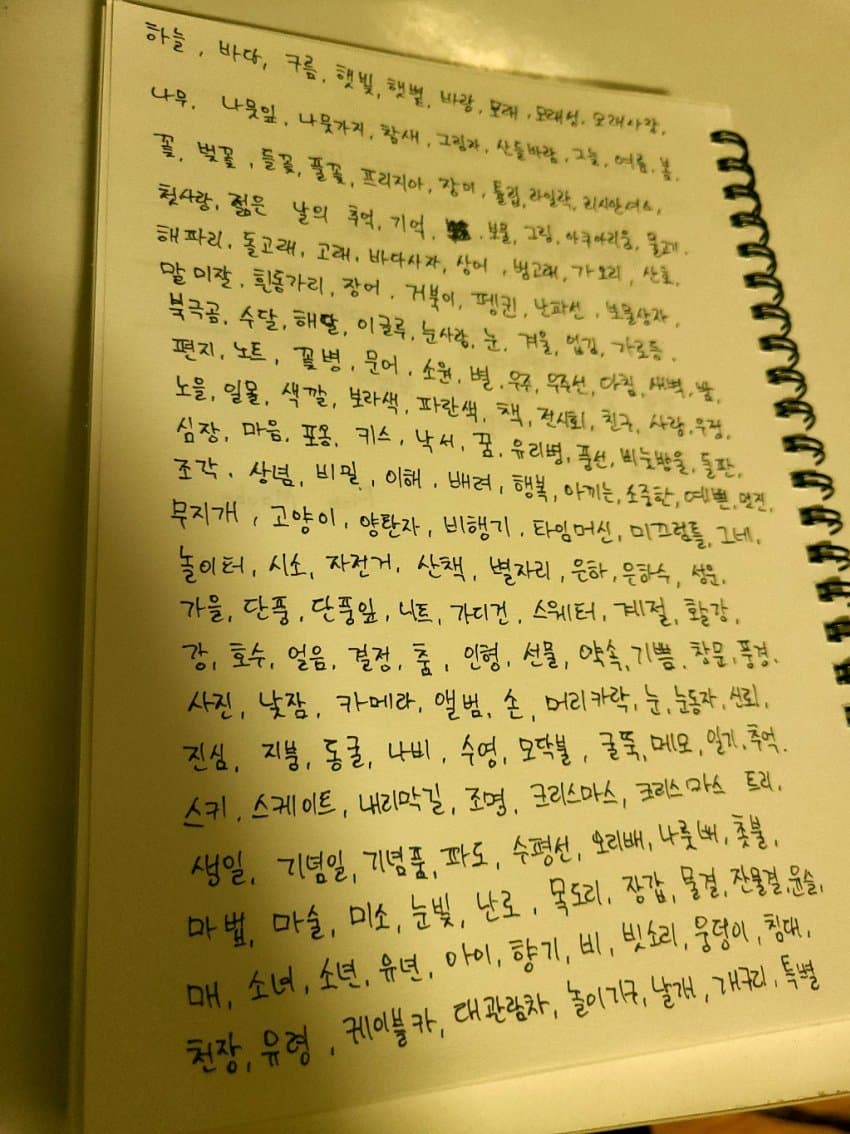 하늘, 바다, 구름, 햇빛, 햇볕, 바람, 모래, 모래성, 모래사장,
나무, 나뭇잎, 나뭇가지, 참새, 그림자, 산들바람, 그늘, 여름, 봄,
꽃, 벚꽃, 들꽃, 풀꽃, 프리지아, 장미, 튤립, 라일락, 리시안셔스,
첫사랑, 젊은 날의 추억, 기억, 보물, 그림, 아쿠아리움, 물고기,
해파리, 돌고래, 고래, 바다사자, 상어, 범고래, 가오리, 산호,
말미잘, 흰동가리, 장어, 거북이, 펭귄, 난파선, 보물상자,
북극곰, 수달, 해달, 이글루, 눈사람, 눈, 겨울, 입김, 가로등,
편지, 노트, 꽃병, 문어, 소원, 별, 우주, 우주선, 다짐, 새벽, 밤,
노을, 일몰, 색깔, 보라색, 파란색, 책, 전시회, 친구, 사랑, 우정,
심장, 마음, 포옹, 키스, 낙서, 꿈, 유리병, 풍선, 비눗방울, 들판,
조각, 상념, 비밀, 이해, 배려, 행복, 아끼는, 소중한, 예쁜, 멋진,
무지개, 고양이, 양탄자, 비행기, 타임머신, 미끄럼틀, 그네,
놀이터, 시소, 자전거, 산책, 별자리, 은하, 은하수, 성운,
가을, 단풍, 단풍잎, 니트, 가디건, 스웨터, 계절, 활강,
강, 호수, 얼음, 결정, 춤, 인형, 선물, 약속, 기쁨, 창문, 풍경,
사진, 낮잠, 카메라, 앨범, 손, 머리카락, 눈, 눈동자, 신뢰,
진심, 지붕, 동굴, 나비, 수영, 모닥불, 굴뚝, 메모, 일기, 추억.
스키, 스케이트, 내리막길, 조명, 크리스마스, 크리스마스 트리,
생일, 기념일, 기념품, 파도, 수평선, 오리배, 나룻배, 촛불,
마법, 마술, 미소, 눈빛, 난로, 목도리, 장갑, 물결, 잔물결, 윤슬,
매, 소녀, 소년, 유년, 아이, 향기, 비, 빗소리, 웅덩이, 침대,
천장, 유령, 케이블카, 대관람차, 놀이기구, 날개, 개구리, 특별